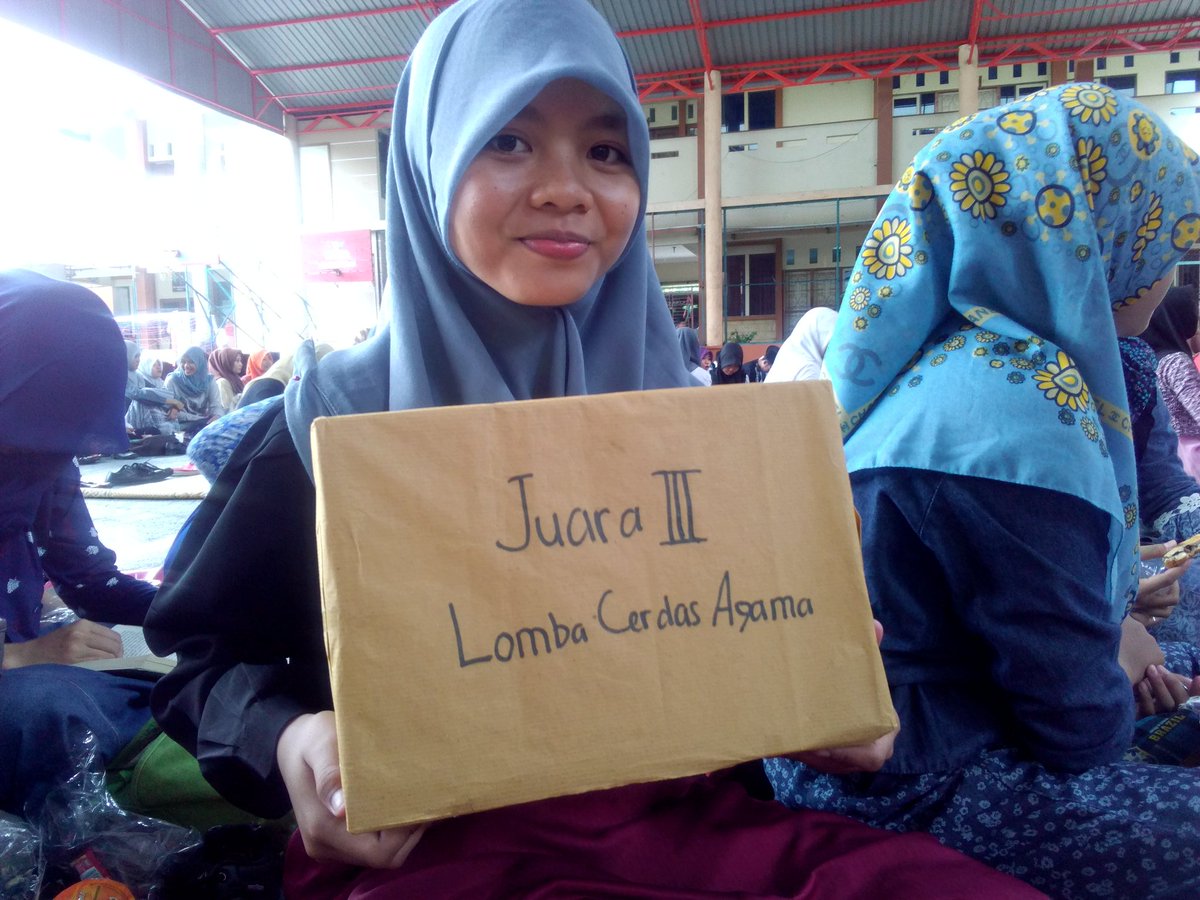 Juara III
Lomba Cerdas Agama
BRAZIL